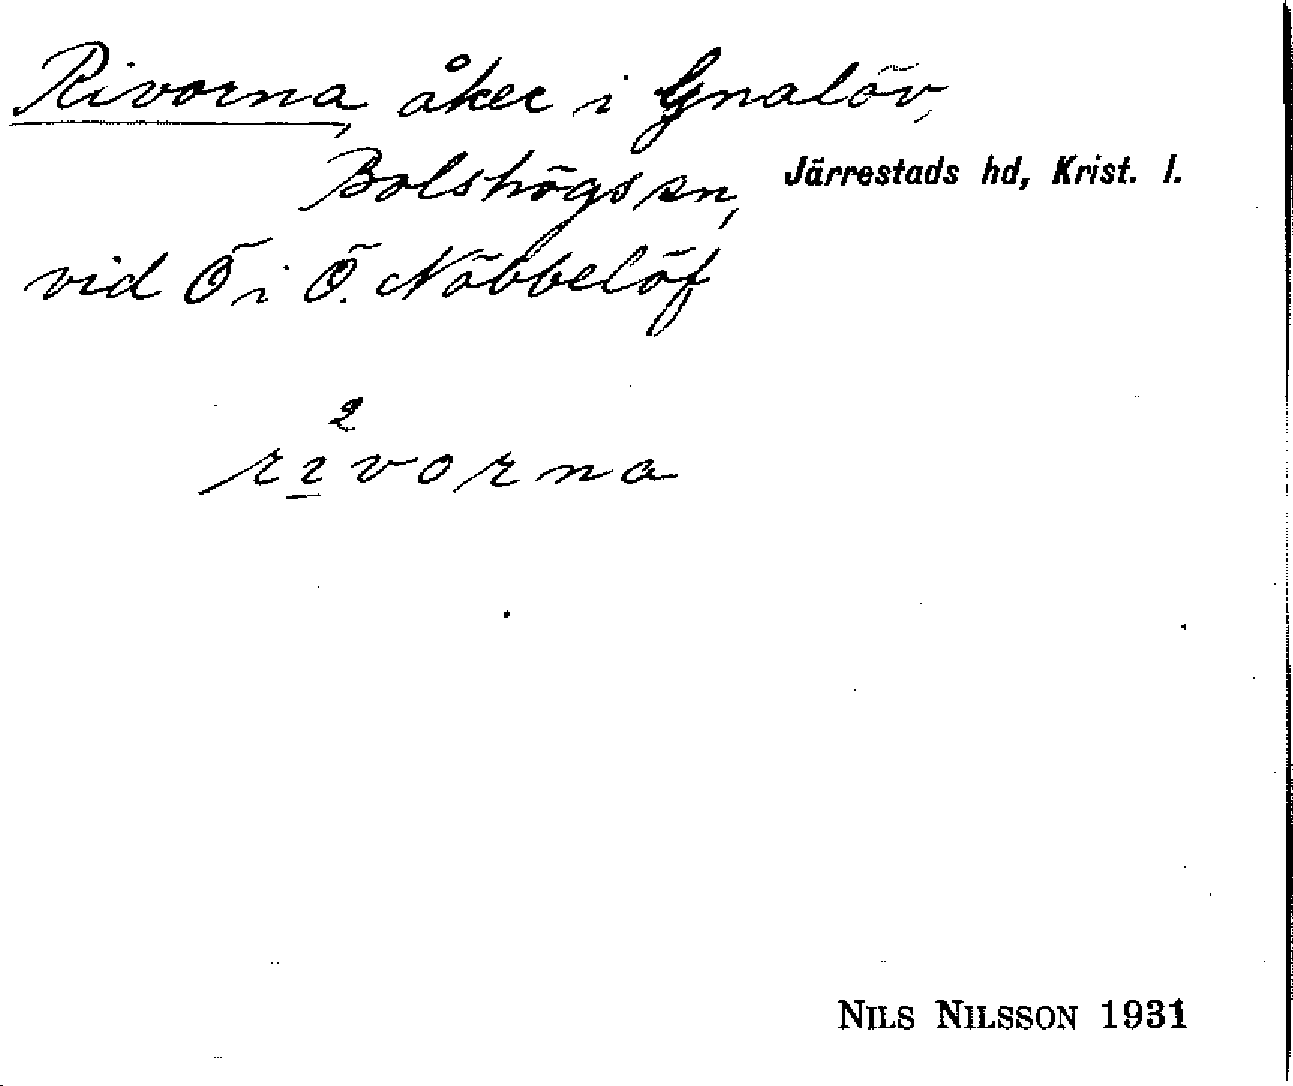 Rivorna, åker i Gnalöv,
Bolshögs sn, Järrestads hd, Krist. l.
vid Ö i Ö. Nöbbelöf
2
rıvorna
NILS NILSSON 1931